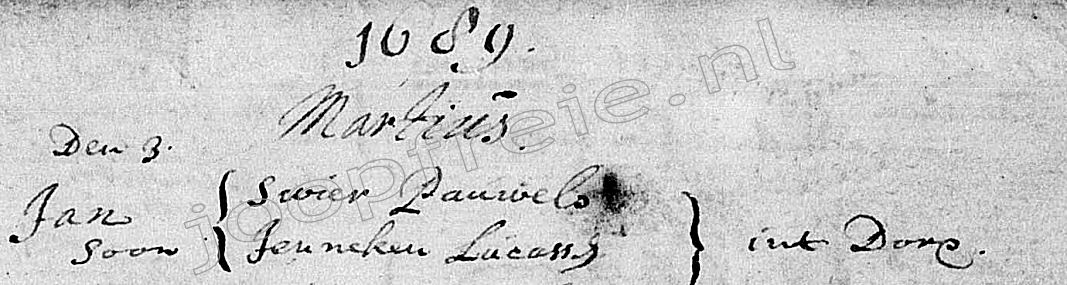 1689.
Martiús.
Den 3.
Jan { Swier Pauwels
soon { Jenneken Lucass } int Dorp.
joopfreie.nl